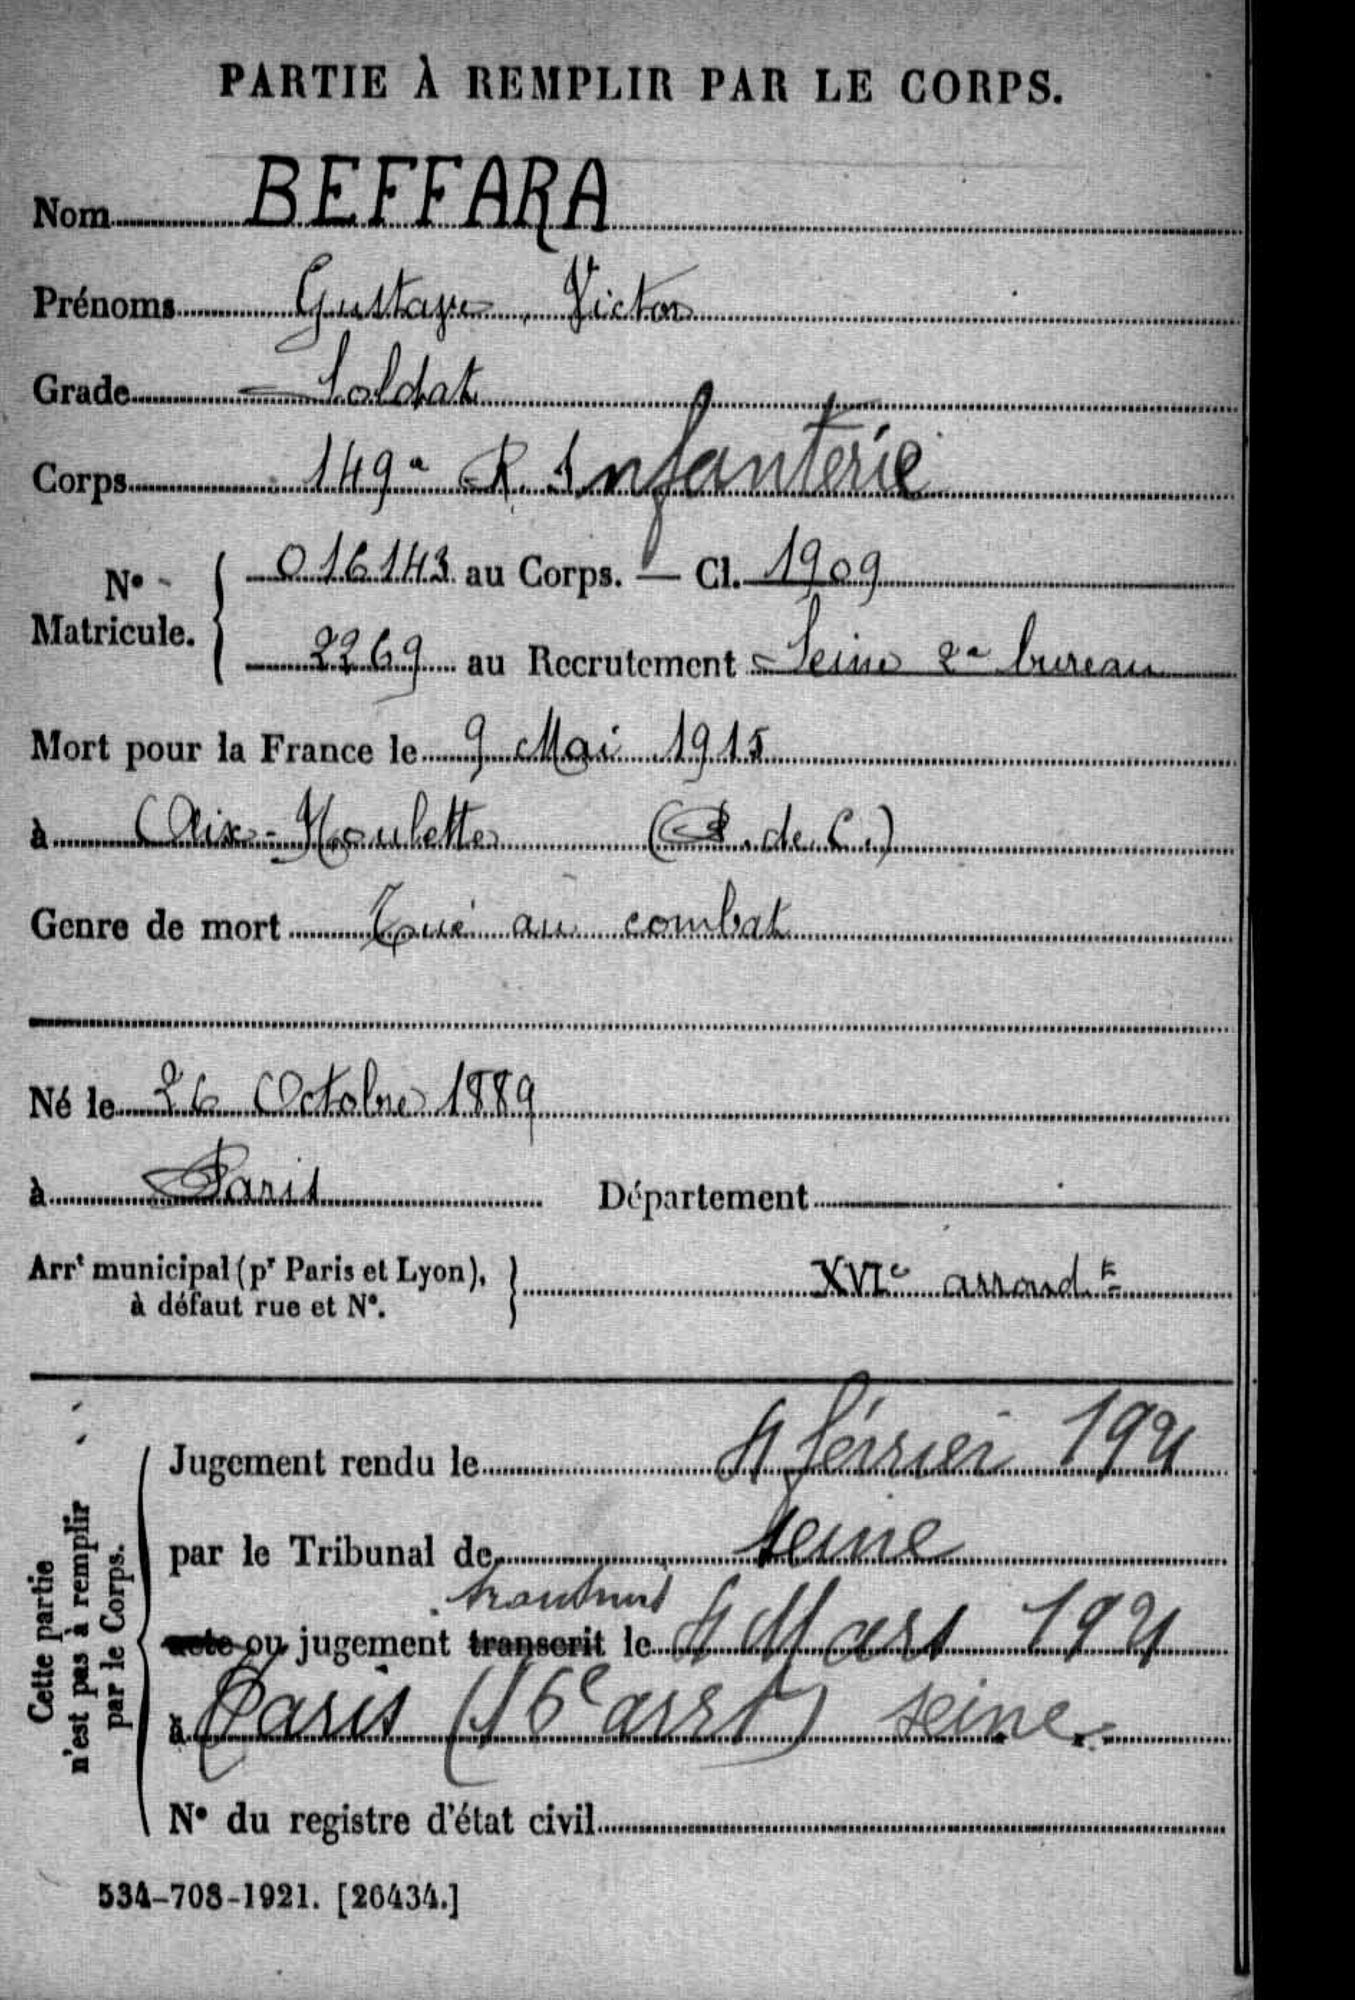 PARTIE À REMPLIR PAR LE CORPS.
Nom BEFFARA
Prénoms Gustave, Victor
Grade Soldat
Corps 149e R. Infanterie
No Matricule. { 016143 au Corps. — Cl. 1909
2269 au Recrutement Seine 2e bureau
Mort pour la France le 9 Mai 1915
à Aix-Noulette (P. de C.)
Genre de mort Tué au combat
Né le 26 Octobre 1889
à Paris Département
Arrt municipal (pr Paris et Lyon), à défaut rue et No. } XVIe arrondt
Cette partie n'est pas à remplir par le Corps.
Jugement rendu le 4 février 1921
par le Tribunal de Seine
transcrit
acte ou jugement transcrit le 4 Mars 1921
à Paris (16e arrt) Seine.
No du registre d'état civil
534-708-1921. [26434.]